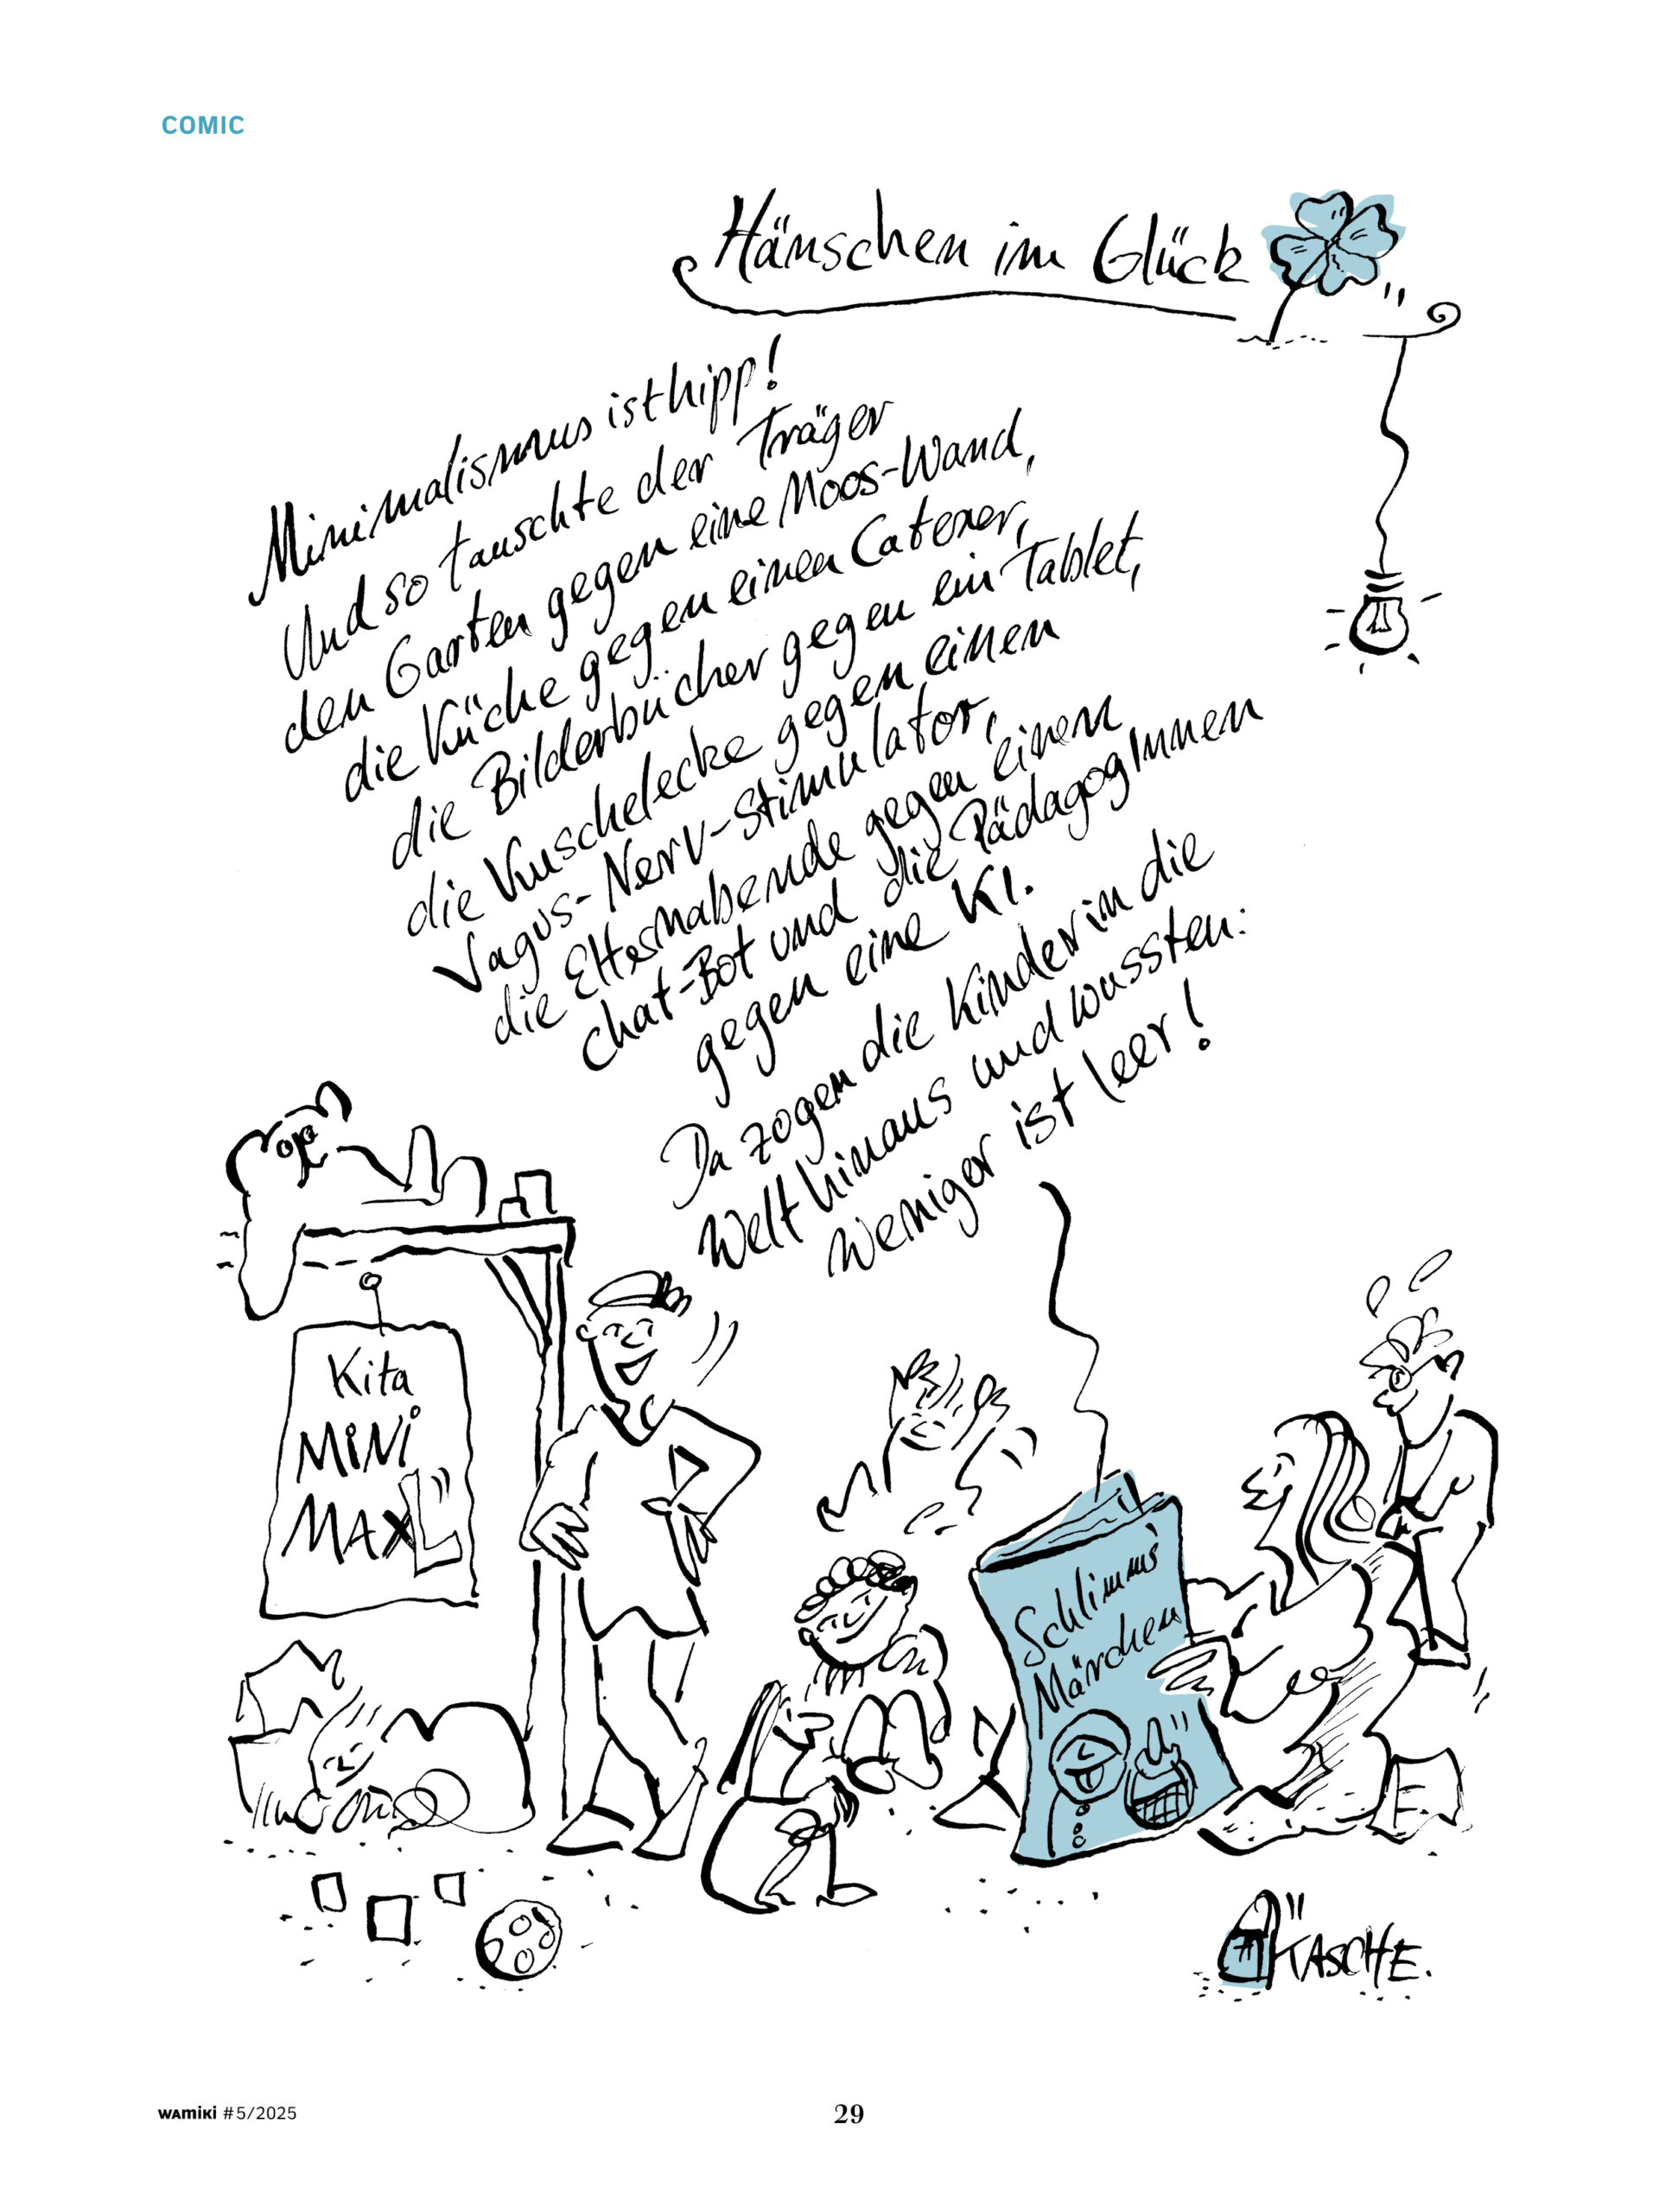 COMIC
Hänschen im Glück
Minimalismus ist hipp!
Und so tauschte der Träger
den Garten gegen eine Moos-Wand,
die Küche gegen einen Caterer,
die Bilderbücher gegen ein Tablet,
die Kuschelecke gegen einen
Vagus-Nerv-Stimulator,
die Elternabende gegen einen
Chat-Bot und die PädagogInnen
gegen eine KI.
Da zogen die Kinder in die
Welt hinaus und wussten:
Weniger ist leer!
Kita
MiNi
MAXL
Schlimms'
Märchen
TASCHE.
WAMIKI #5/2025
29